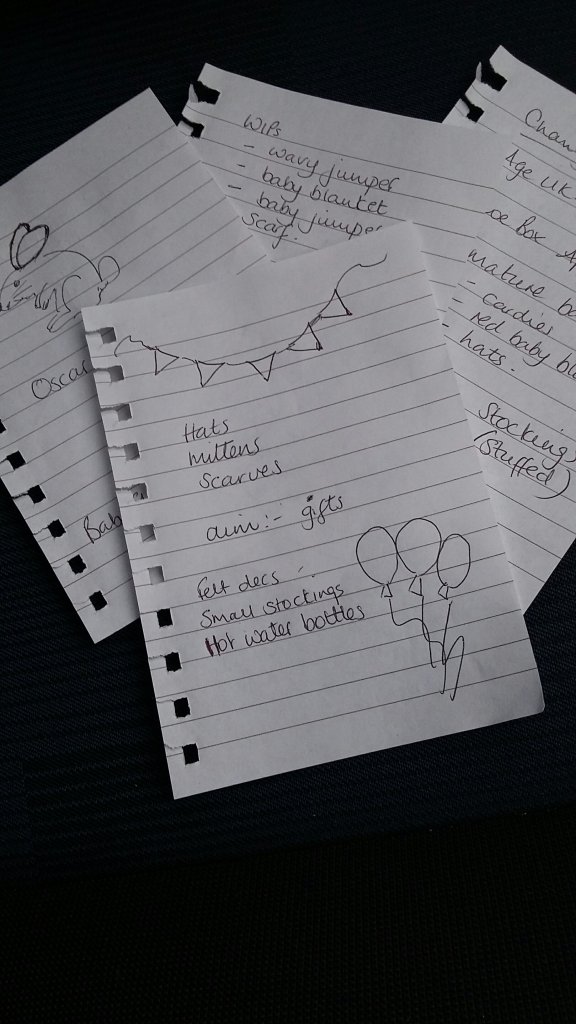 WIPs
- wavy jumper
- baby blanket
- baby jumper
scarf.
Age UK
Box
mature
- cardies
- red baby
- hats.
Stockings
(Stuffed)
Oscar
Hats
mittens
scarves
aim:- gifts
felt decs
Small stockings
Hot water bottles